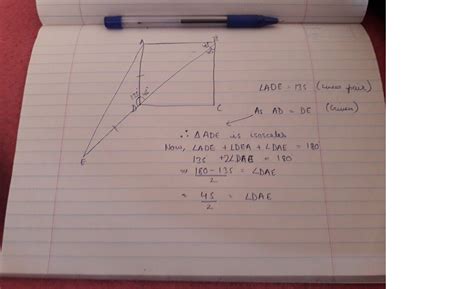 A
B
45
135
45°
D
C
E
∠ADE = 135 (linear pair)
As AD = DE (Given)
∴ △ADE is isosceles
Now, ∠ADE + ∠DEA + ∠DAE = 180
135 + 2∠DAE = 180
⇒ 180-135 = ∠DAE
2
= 45 = ∠DAE
2